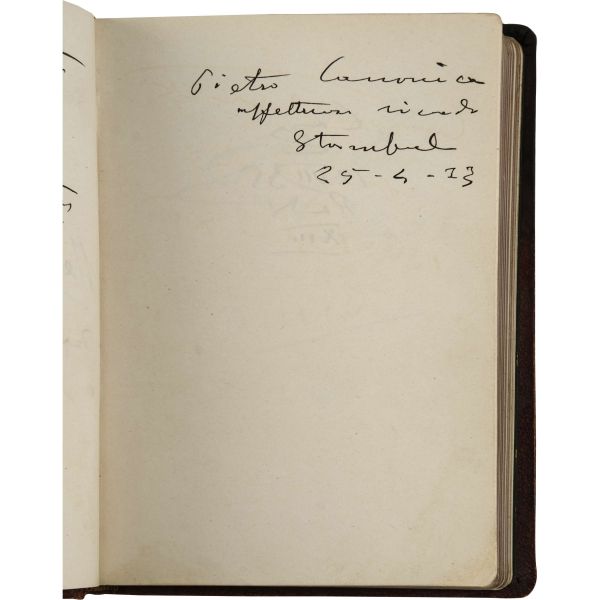 Pietro Canonica
affettuoso ricordo
Stambul
25-4-33